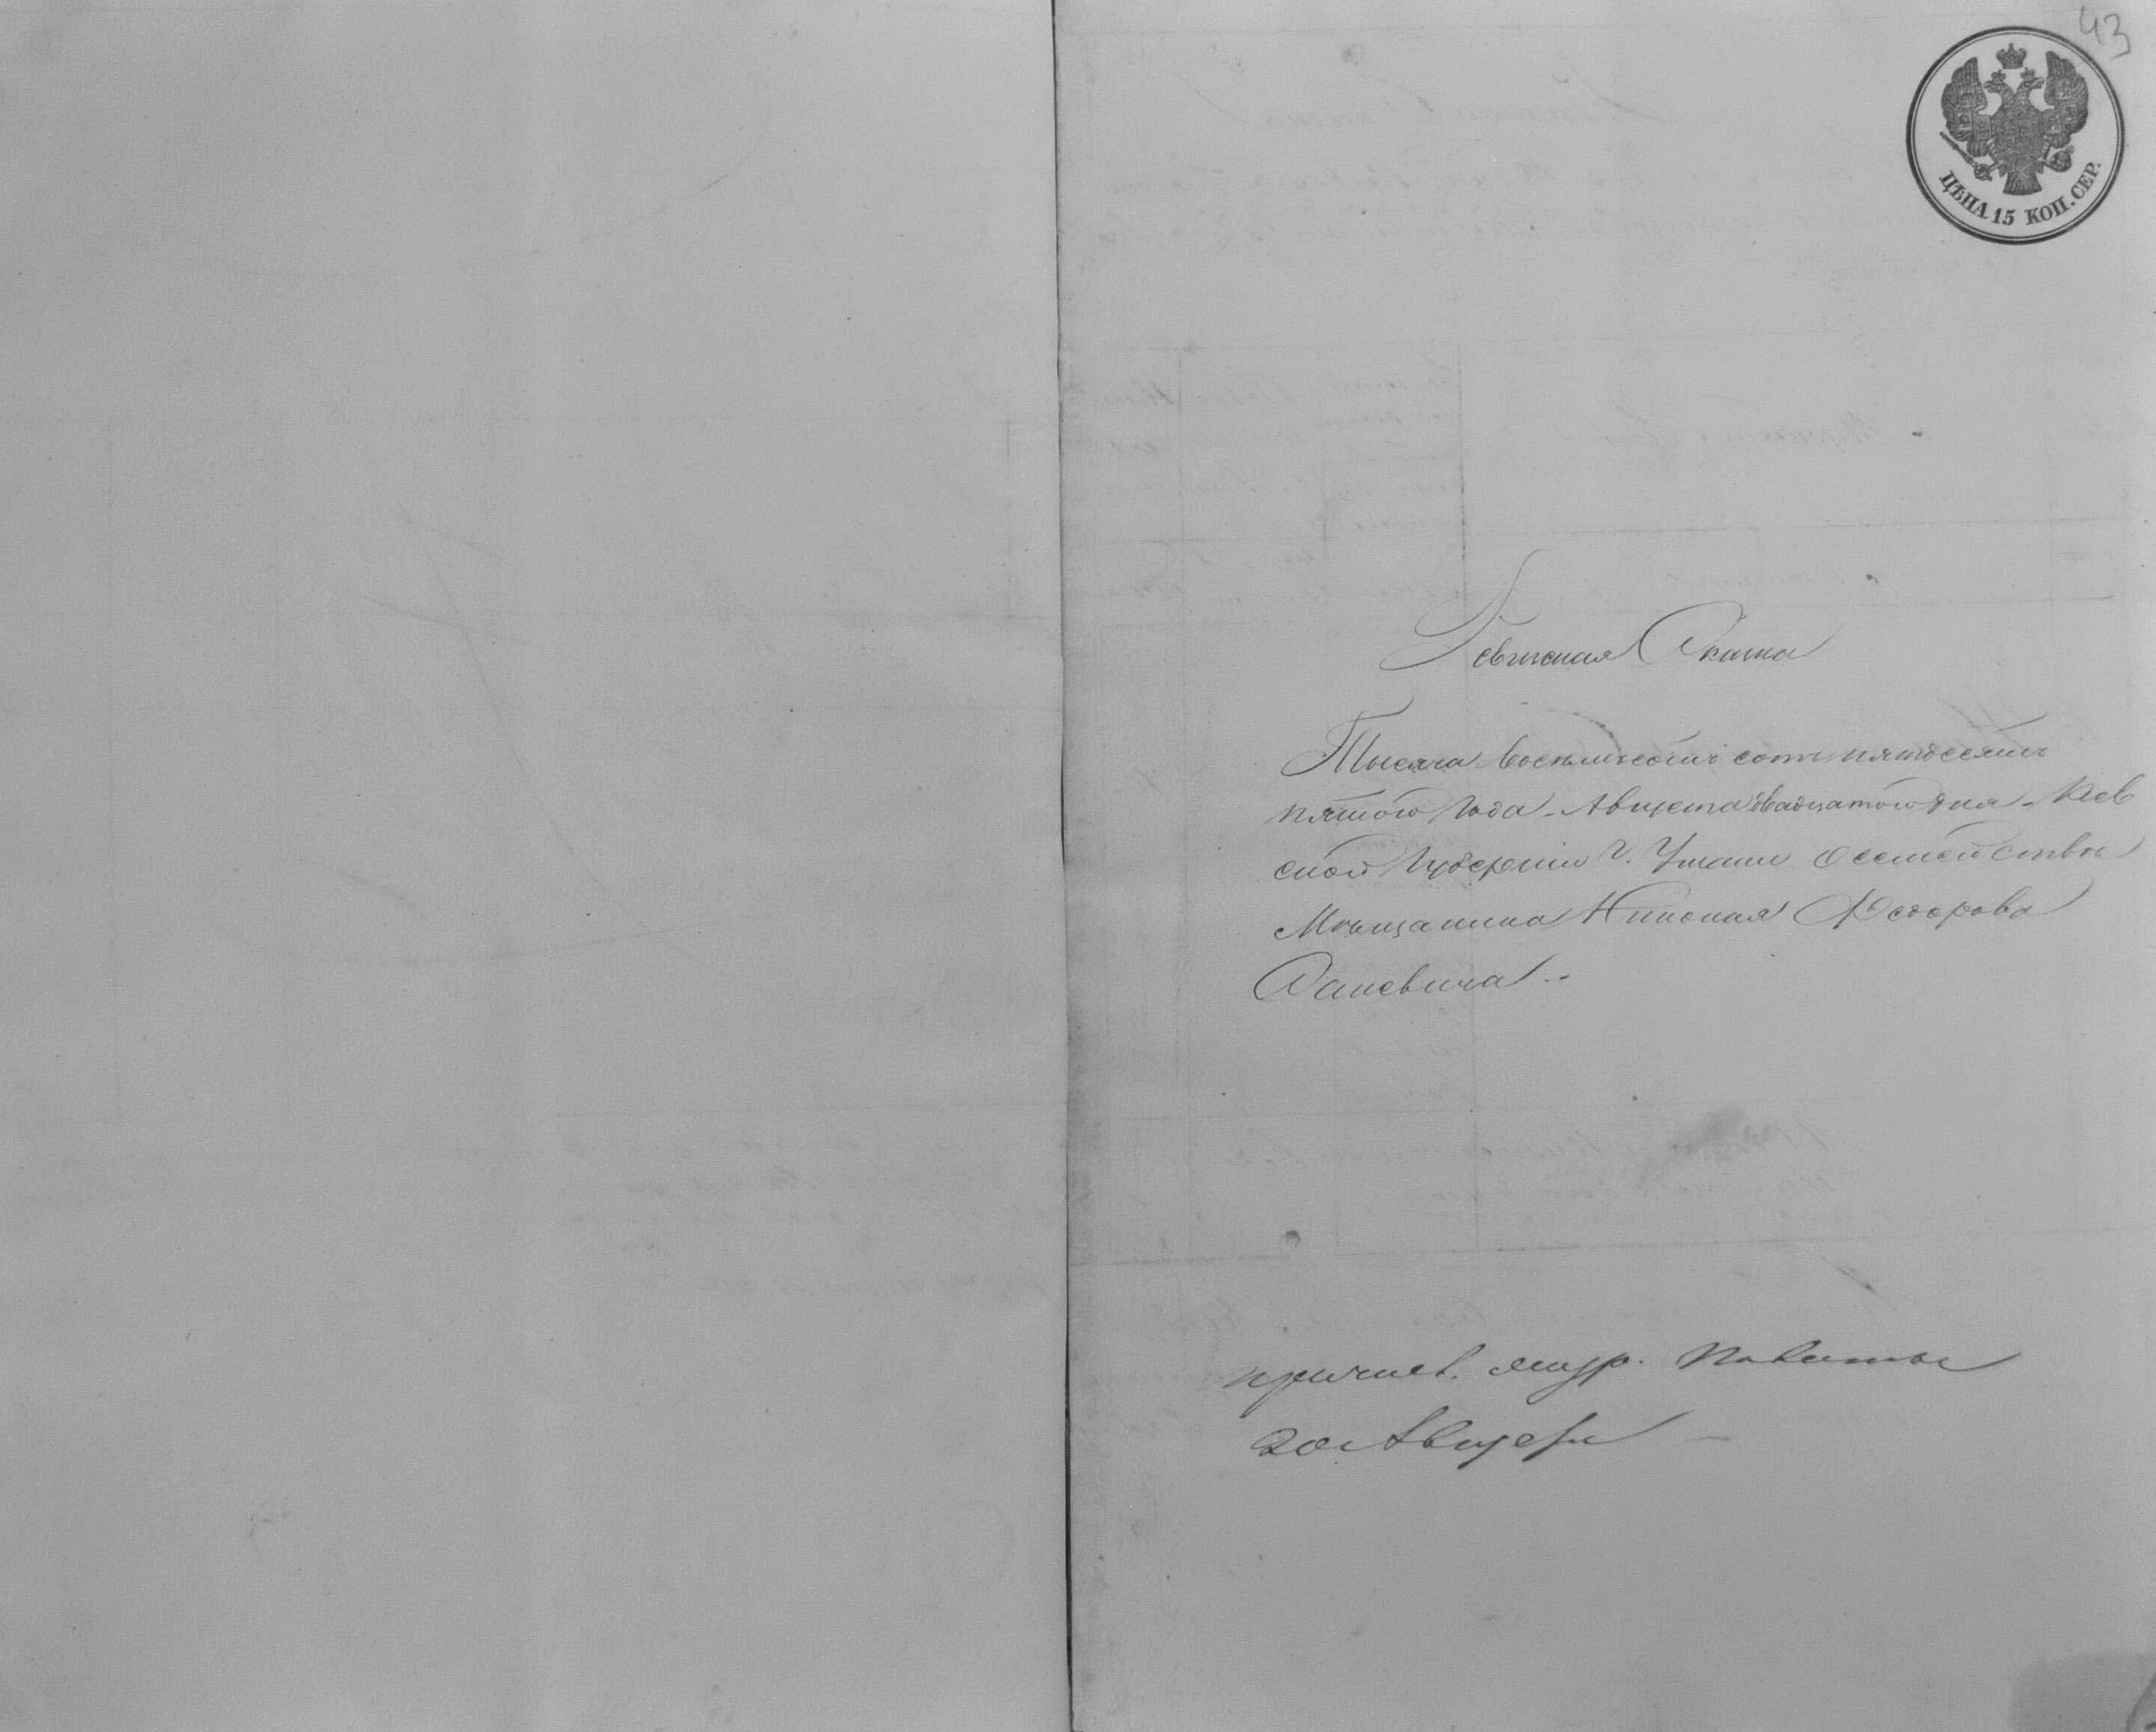 43
ЦѢНА 15 КОП. СЕР.
Ревижская Скаска
Тысяча восемьсотъ сотъ пятдесятъ
пятого Года Августа двадцатого дня Кіев
ской Губерніи г. Умани о семействѣ
Мѣщанина Николая Федорова
Саневича
20 Августа